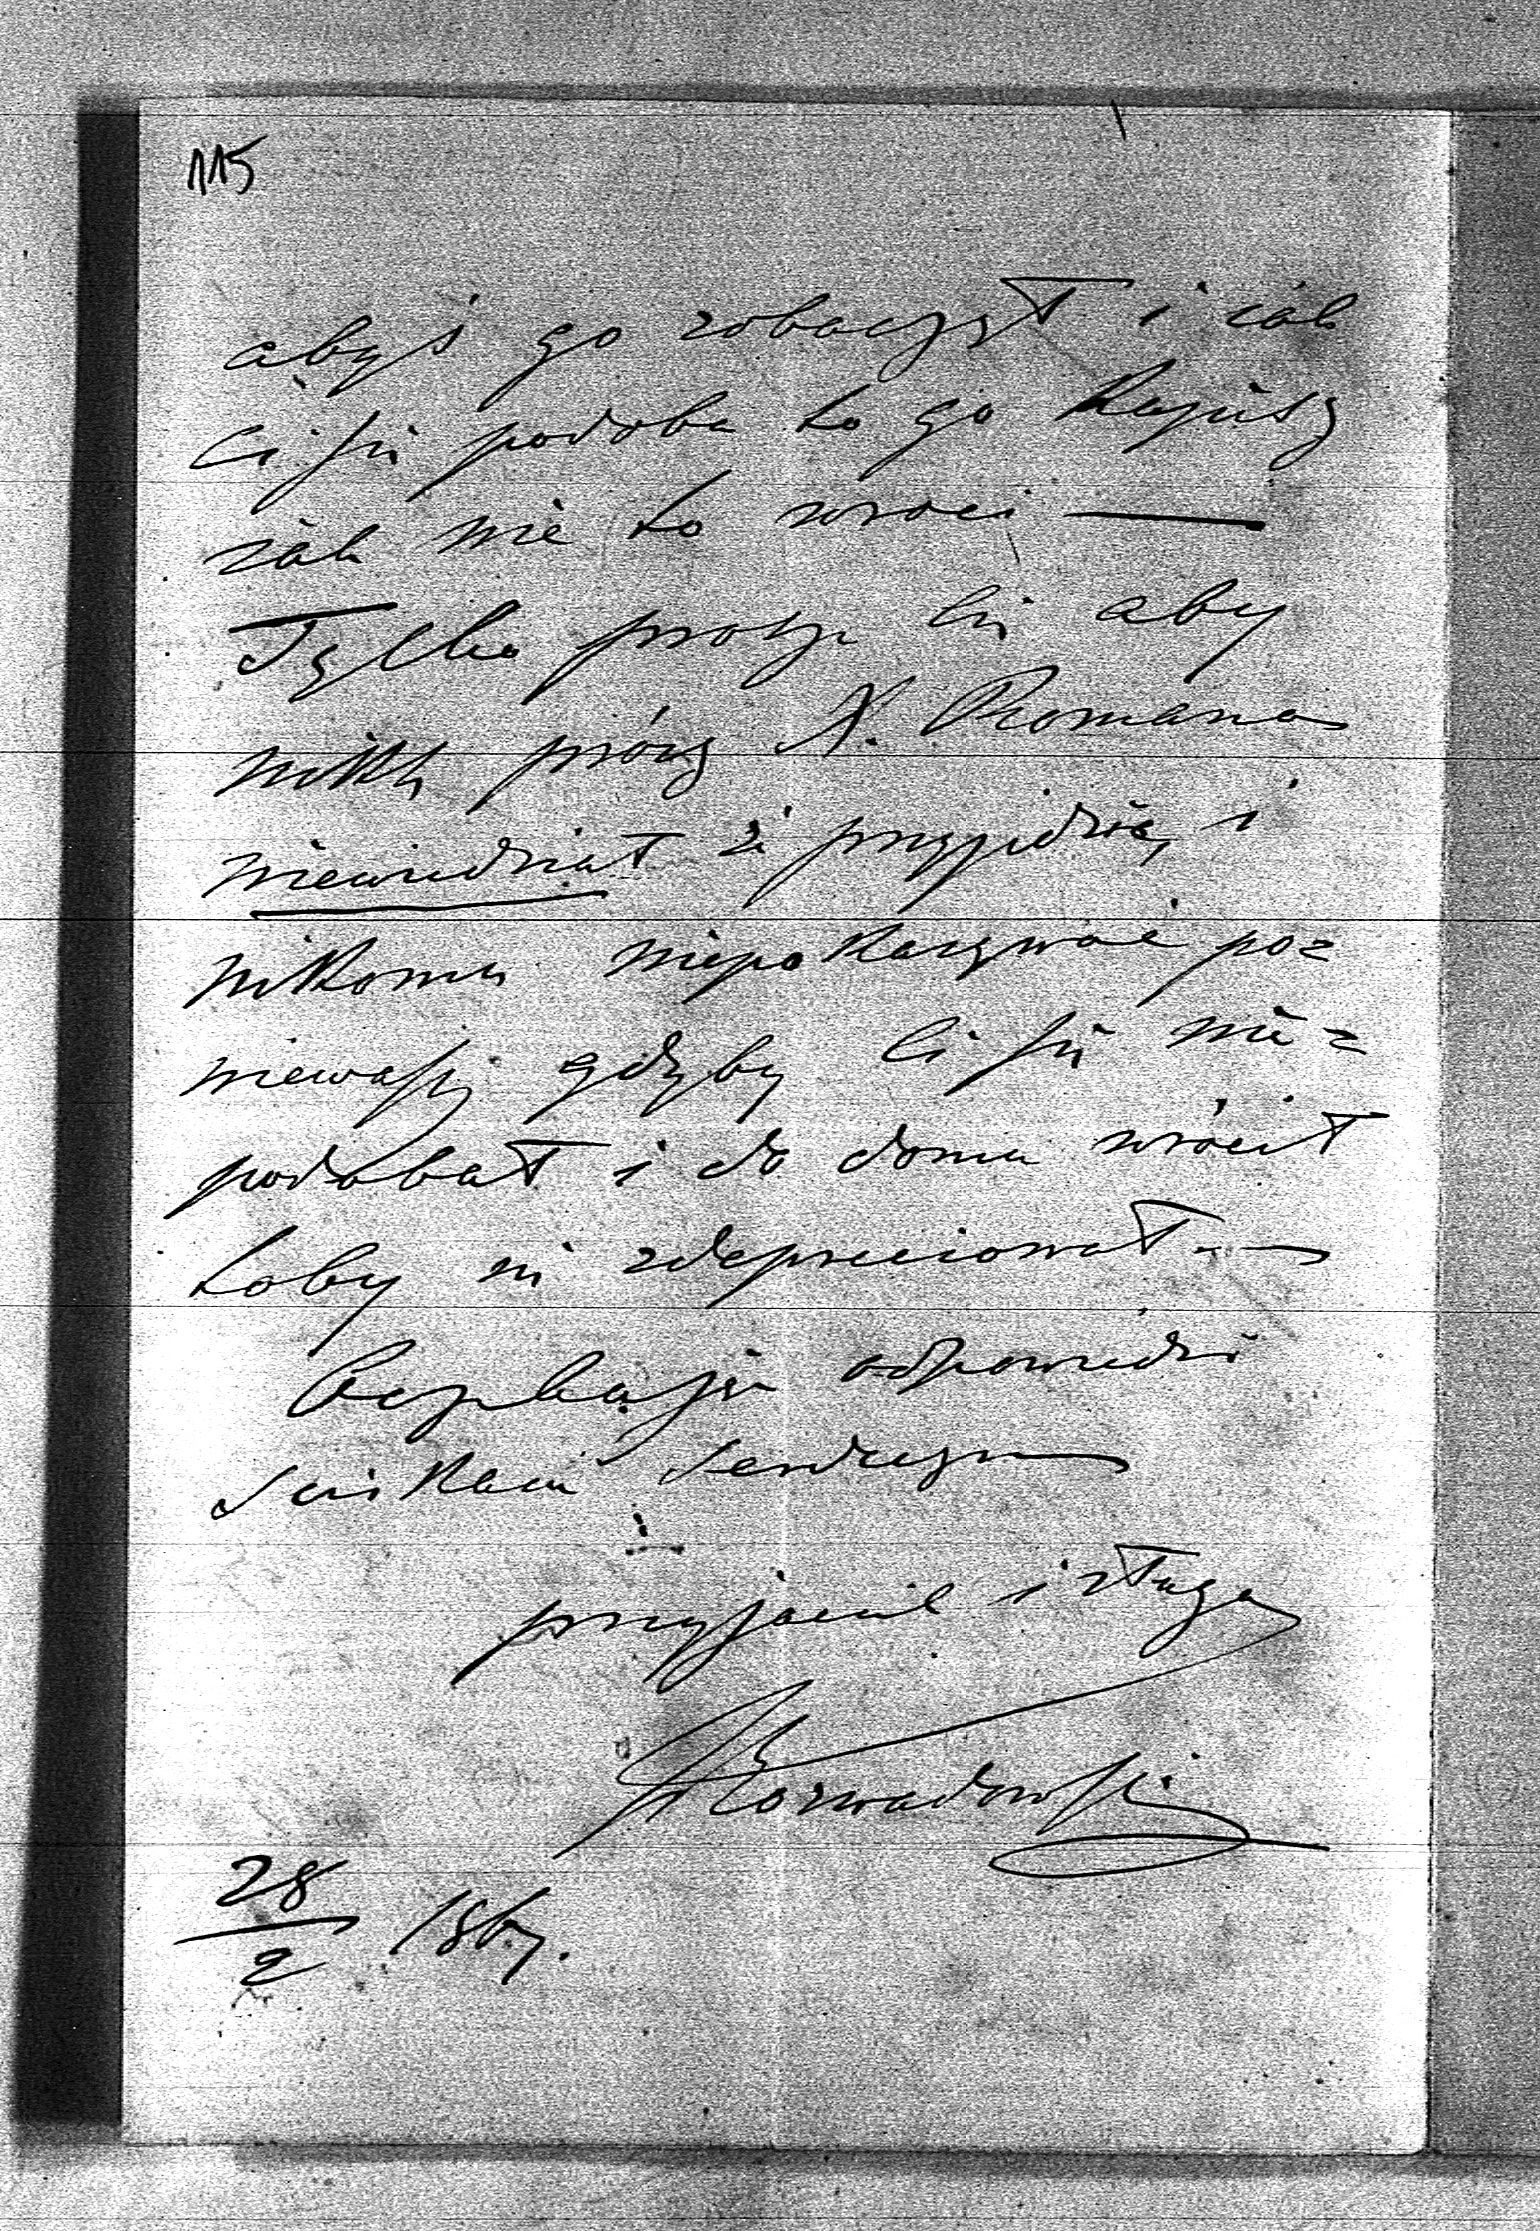 115
abyś go zobaczył i iak
Ci się podoba to go kupisz
iak nie to wróci —
Tylko proszę Cię aby
nikt prócz X. Romana
niewiedział że przyjedzie, i
nikomu niepokazywać po=
niewasz gdyby Ci się nie=
podobał i do domu wrócił
toby się zdepreciował —
Czekając odpowiedzi
sciskam serdecznie
przyjaciel i sługa
Rozwadowski
28/2 1867.